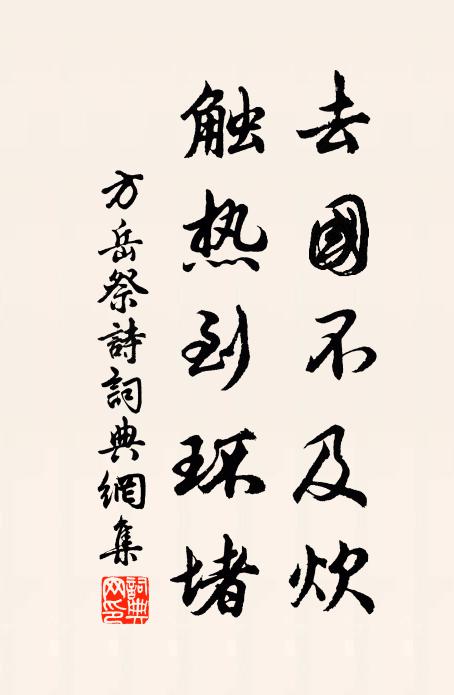 去國不及炊
触热到环堵
方岳祭詩詞典網集
詞典网印